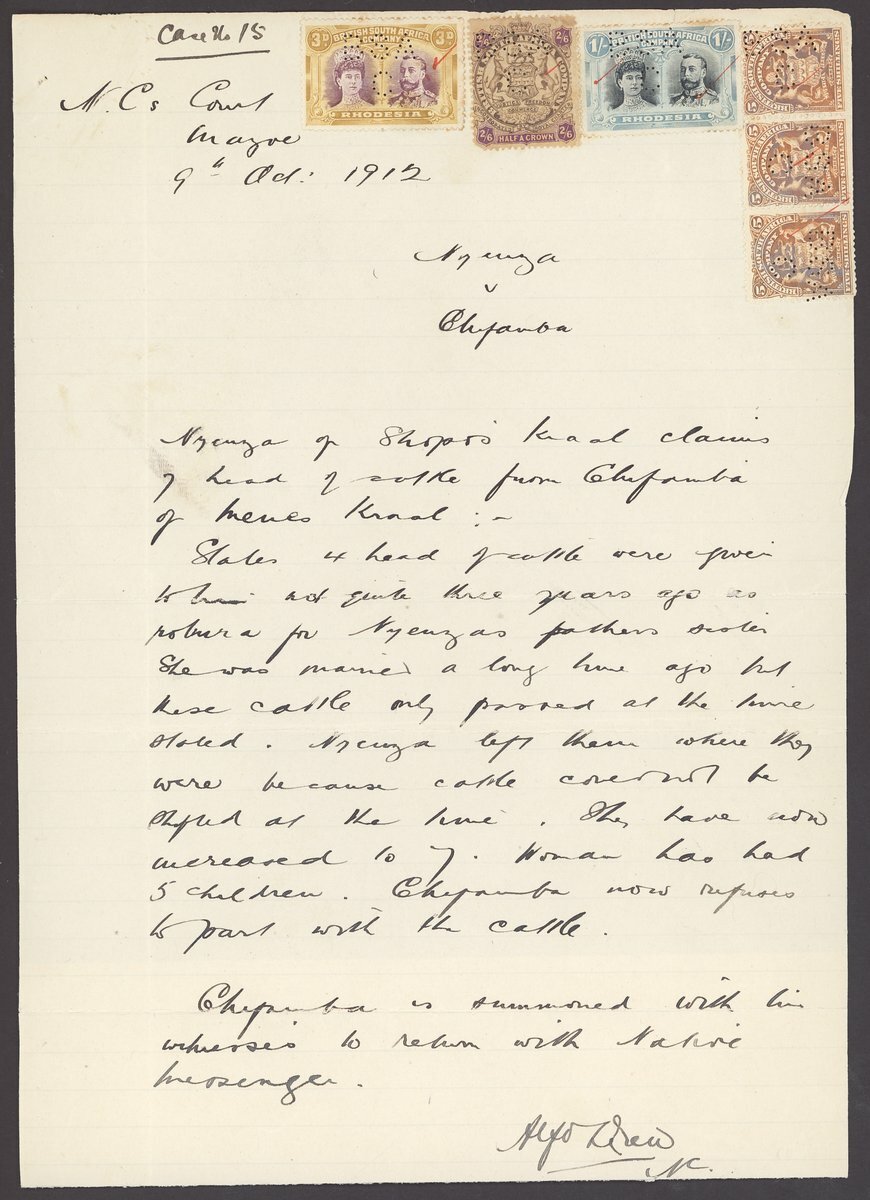 Case No 15
3D BRITISH SOUTH AFRICA COMPANY 3D
RHODESIA
2/6 2/6
HALF A CROWN
2/6 2/6
1/- BRITISH SOUTH AFRICA COMPANY 1/-
RHODESIA
N. Cs Court
Mazoe
9th Oct: 1912
Nyenza
v
Chifamba
Nyenza of Shopo's Kraal claims
7 head of cattle from Chifamba
of Menes Kraal :-
States 4 head of cattle were given
to him not quite three years ago as
robora for Nyenzas fathers sister
She was married a long time ago but
these cattle only passed at the time
stated. Nyenza left them where they
were because cattle could not be
shifted at the time. They have now
increased to 7. Woman has had
5 children. Chifamba now refuses
to part with the cattle.
Chifamba is summoned with his
witnesses to return with Native
Messenger.
Alfd Drew
NC.